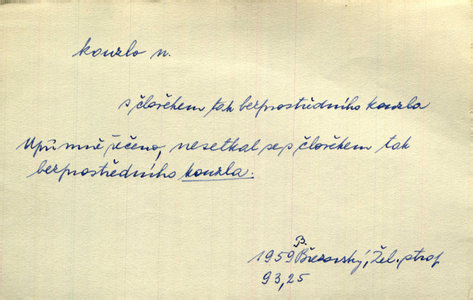 kouzlo n.
s člověkem tak bezprostředního kouzla
Upřímně řečeno, nesetkal se s člověkem tak
bezprostředního kouzla.
B.
1959 Březovský, Žel. strop
93,25